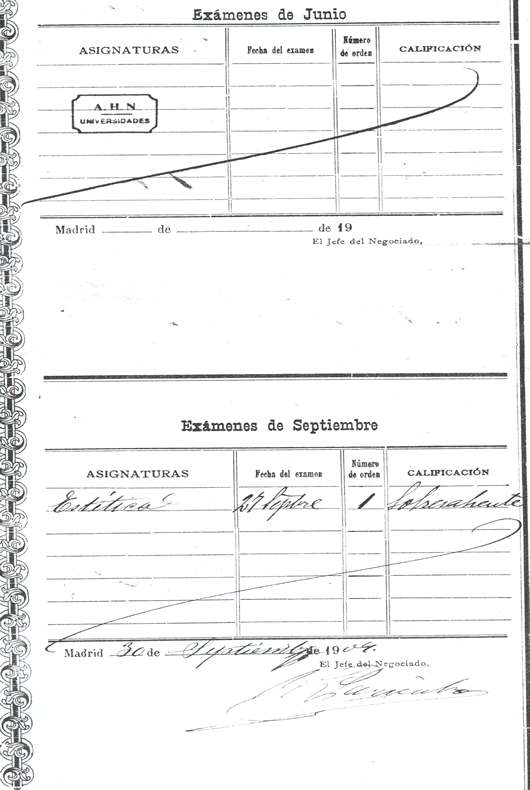 Exámenes de Junio
ASIGNATURAS Fecha del examen Número de orden CALIFICACIÓN
A. H. N
UNIVERSIDADES
Madrid de de 19
El Jefe del Negociado,
Exámenes de Septiembre
ASIGNATURAS Fecha del examen Número de orden CALIFICACIÓN
Estética 27 Sepbre 1 Sobresaliente
Madrid 30 de Septiembre de 1904.
El Jefe del Negociado,